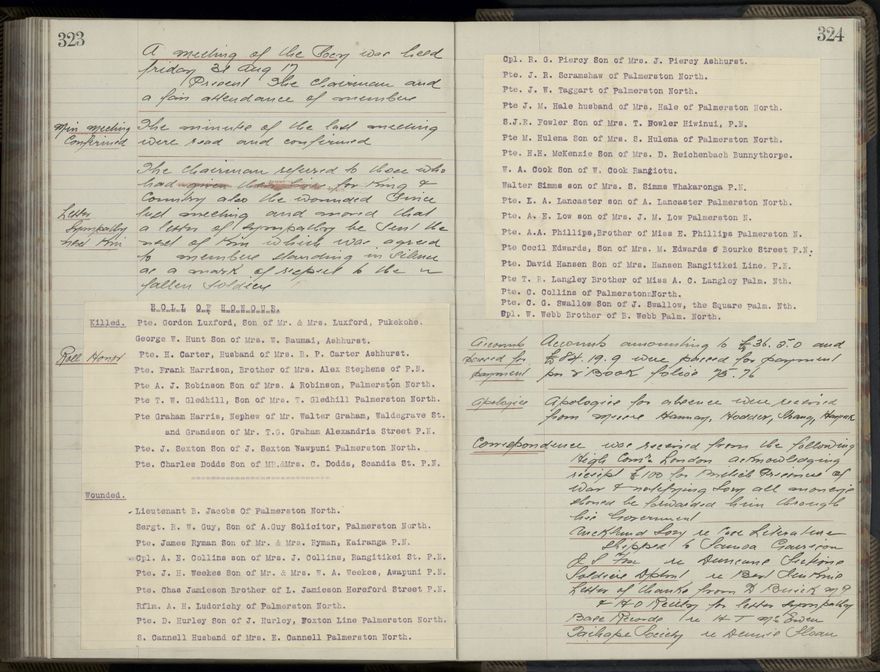 323
A meeting of the Socy was held
friday 31 Aug 17
Present The Chairman and
a fair attendance of members
Min meeting
Confirmed
The minutes of the last meeting
were read and confirmed
The Chairman referred to those who
had given their lives for King &
Country also the wounded Since
last meeting and moved that
Letter
Sympathy
next Kin
a letter of sympathy be sent the
next of Kin which was agreed
to members standing in Silence
as a mark of respect to the
fallen Soldiers
ROLL OF HONOUR.
Killed. Pte. Gordon Luxford, Son of Mr. & Mrs. Luxford, Pukekohe.
George W. Hunt Son of Mrs. W. Raumai, Ashhurst.
Roll Honor
Pte. H. Carter, Husband of Mrs. B. P. Carter Ashhurst.
Pte. Frank Harrison, Brother of Mrs. Alex Stephens of P.N.
Pte A. J. Robinson Son of Mrs. A Robinson, Palmerston North.
Pte T. W. Gledhill, Son of Mrs. T. Gledhill Palmerston North.
Pte Graham Harris, Nephew of Mr. Walter Graham, Waldegrave St.
and Grandson of Mr. T.G. Graham Alexandria Street P.N.
Pte. J. Sexton Son of J. Sexton Wawpuni Palmerston North.
Pte. Charles Dodds Son of MR.&Mrs. C. Dodds, Scandia St. P.N.
Wounded.
Lieutenant B. Jacobs Of Palmerston North.
Sergt. R. W. Guy, Son of A.Guy Solicitor, Palmerston North.
Pte. James Ryman Son of Mr. & Mrs. Hyman, Kairanga P.N.
Cpl. A. E. Collins son of Mrs. J. Collins, Rangitikei St. P.N.
Pte. J. H. Weekes Son of Mr. & Mrs. W. A. Weekes, Awapuni P.N.
Pte. Chas Jamieson Brother of L. Jamieson Hereford Street P.N.
Rflm. A. H. Ludorichy of Palmerston North.
Pte. D. Hurley Son of J. Hurley, Foxton Line Palmerston North.
S. Cannell Husband of Mrs. E. Cannell Palmerston North.
324
Cpl. R. G. Piercy Son of Mrs. J. Piercy Ashhurst.
Pte. J. R. Scramshaw of Palmerston North.
Pte. J. W. Taggart of Palmerston North.
Pte J. M. Hale husband of Mrs. Hale of Palmerston North.
S.J.R. Fowler Son of Mrs. T. Nowler Hiwinui, P.N.
Pte M. Hulena Son of Mrs. S. Hulena of Palmerston North.
Pte. H.H. McKenzie Son of Mrs. D. Reichenbach Bunnythorpe.
W. A. Cook Son of W. Cook Rangiotu.
Walter Simms son of Mrs. S. Simms Whakaronga P.N.
Pte. L. A. Lancaster son of A. Lancaster Palmerston North.
Pte. A. E. Low son of Mrs. J. M. Low Palmerston N.
Pte. A.A. Phillips,Brother of Miss E. Phillips Palmerston N.
Pte Cecil Edwards, Son of Mrs. M. Edwards 6 Bourke Street P.N.
Pte. David Hansen Son of Mrs. Hansen Rangitikei Line. P.N.
Pte T. R. Langley Brother of Miss A. C. Langloy Palm. Nth.
Pte. C. Collins of Palmerston North.
Pte. C. G. Swallow Son of J. Swallow, the Square Palm. Nth.
Cpl. W. Webb Brother of B. Webb Palm. North.
Accounts
passed for
payment
Accounts amounting to £36.5.0 and
£84.19.9 were passed for payment
per & Book folios 75.76
Apologies
Apologies for absence were received
from Messrs Hannay, Hodder,
Correspondence was received from the following
High Com's London acknowledging
receipt £100 for British Prisoners of
War & notifying Socy all moneys
should be forwarded him through
his Government
Auckland Socy re Literature
Shipped to Samoa Garrison
re Duncans Sections
Soldiers re
Letter of thanks from D Buick M.P
& H O for letter sympathy
Base Records re H T McEwen
Taihape Society re Dennis Sloan